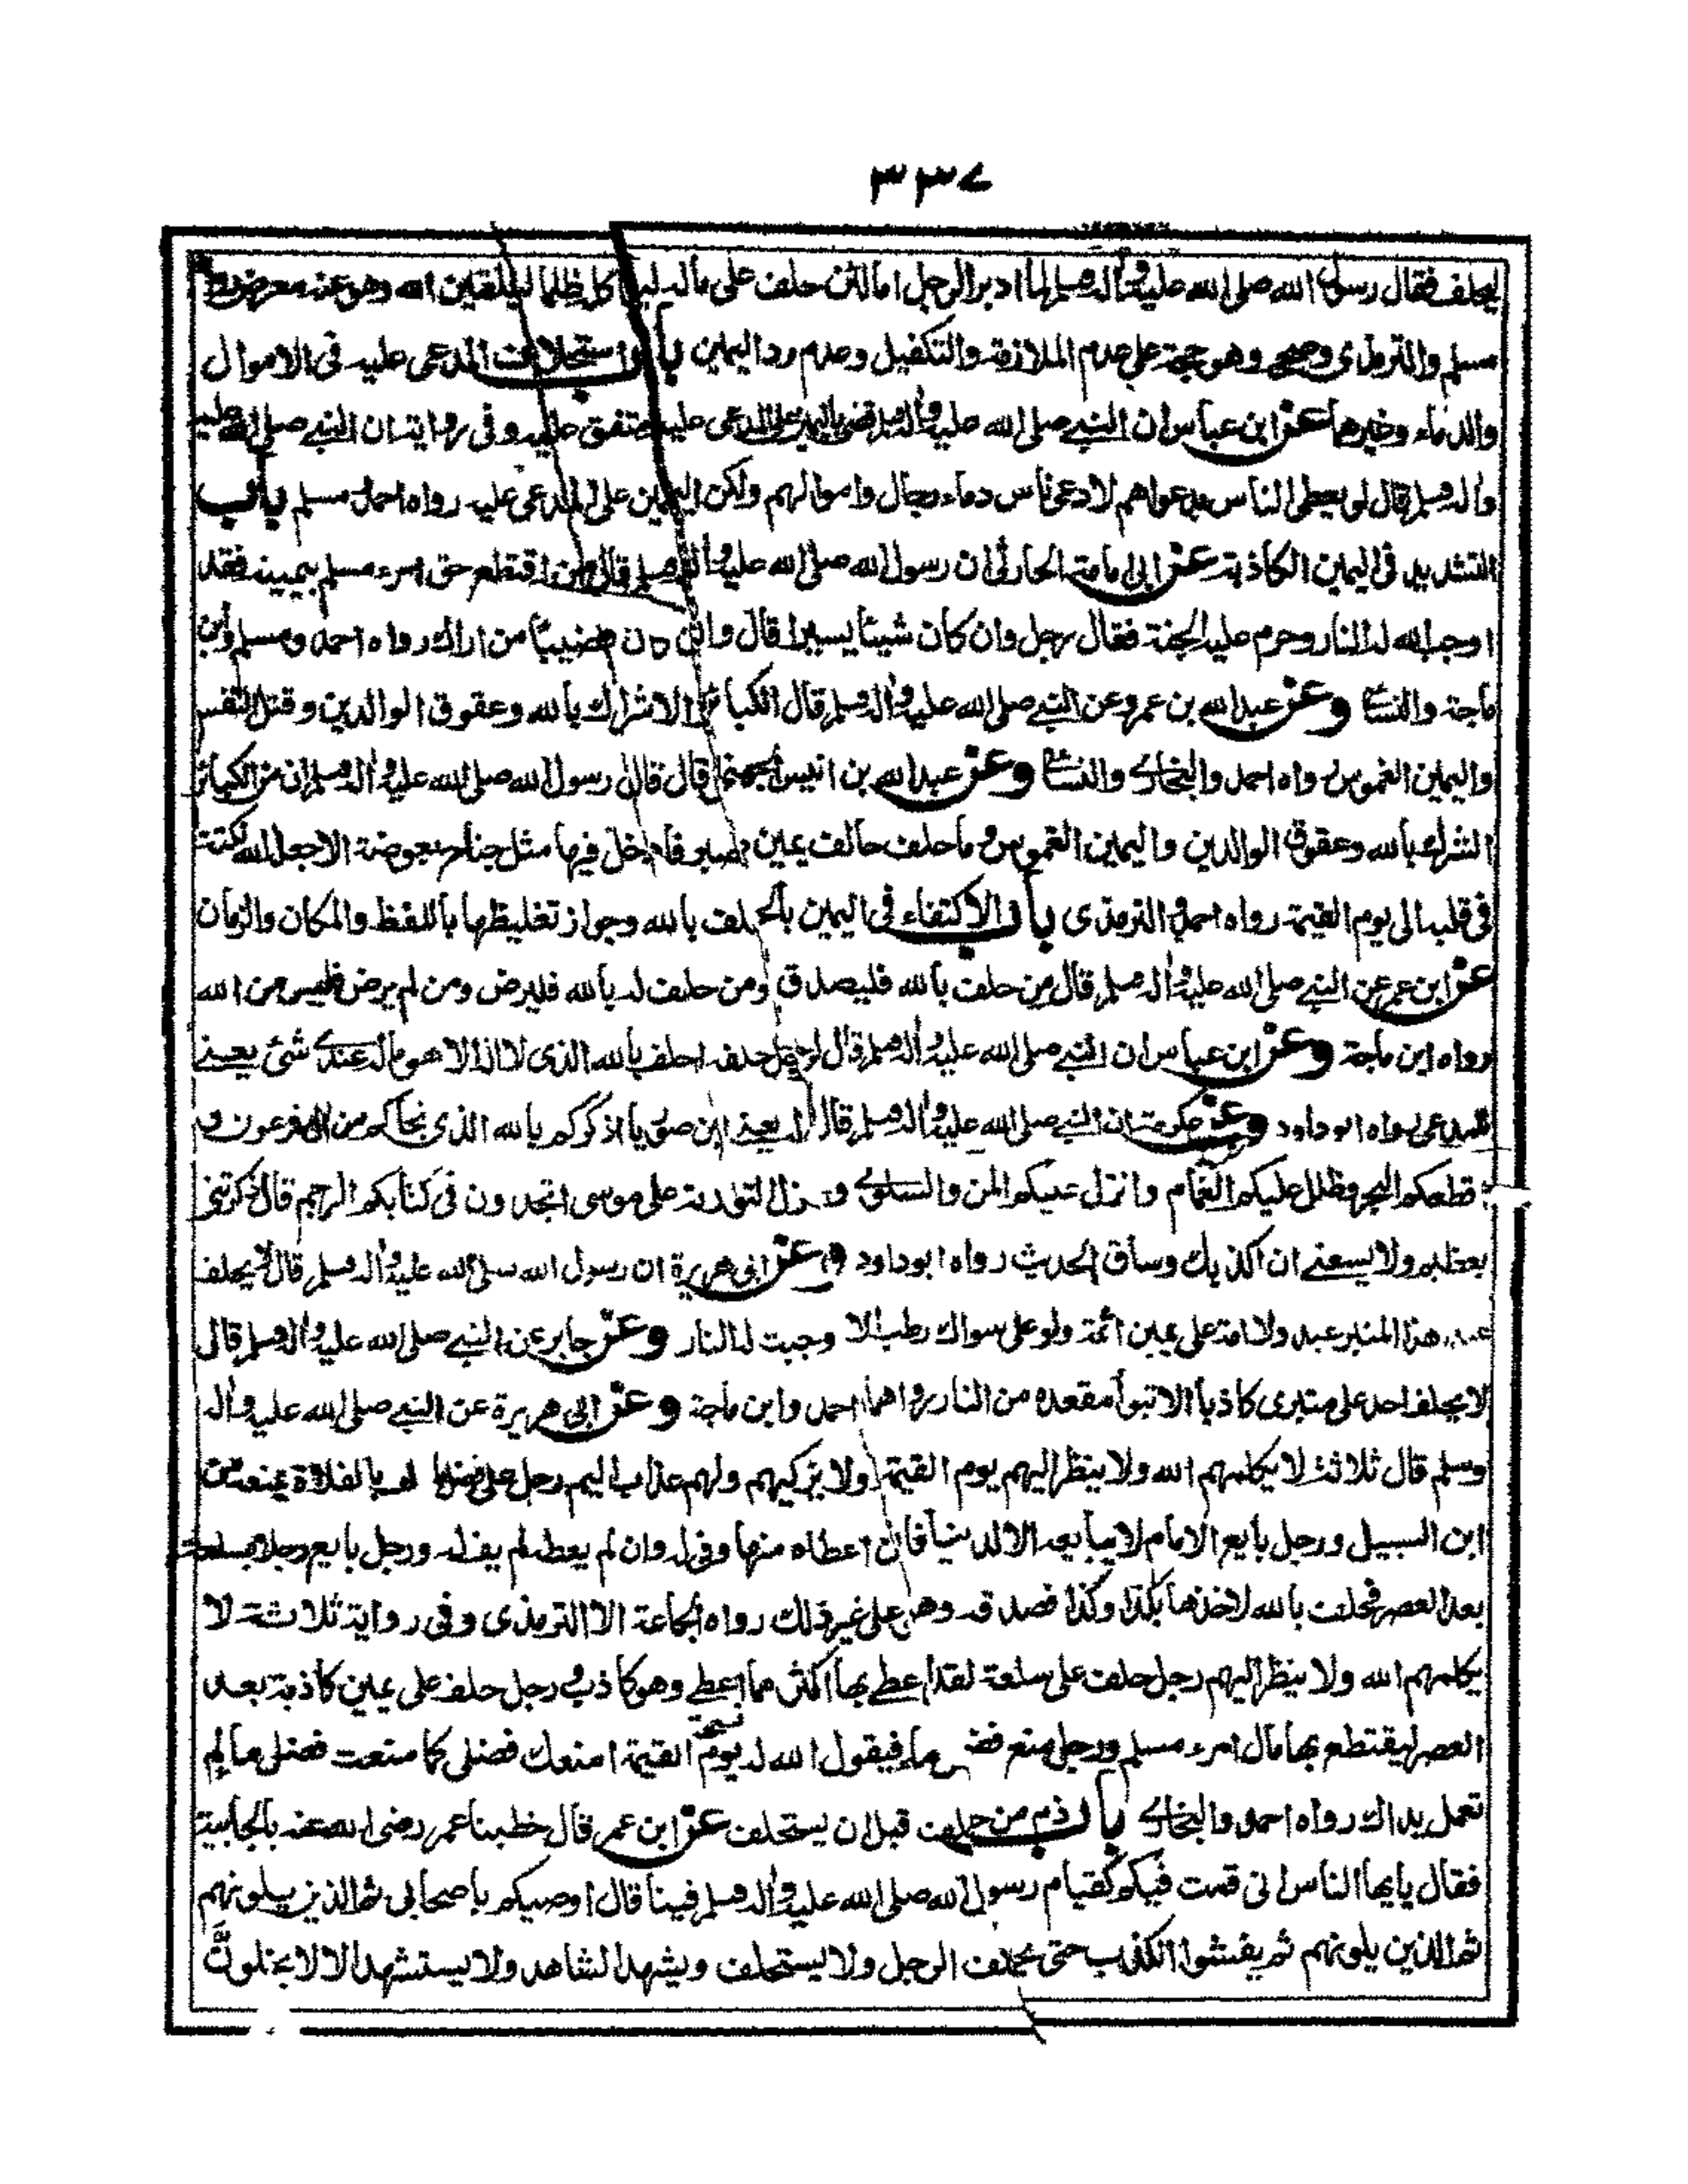 ٣٣٧
ليحلف فقال رسول الله صلى الله عليه وآله وسلم لما ادبر الرجل اما لئن حلف على ماله لياكل ظلما ليلقين الله وهو عنه معرض رواه
مسلم والترمذى وصححه وهو حجة على عدم الملازمة والتكفيل وعدم رد اليمين باب استحلاف المدعى عليه فى الاموال
والدماء وغيرها عن ابن عباس ان النبي صلى الله عليه وآله وسلم قضى باليمين على المدعى عليه متفق عليه وفى رواية ان النبي صلى الله عليه
وآله وسلم قال لو يعطى الناس بدعواهم لادعى ناس دماء رجال واموالهم ولكن اليمين على المدعى عليه رواه احمد ومسلم باب
التشديد فى اليمين الكاذبة عن ابى امامة الحارثى ان رسول الله صلى الله عليه وآله وسلم قال من اقتطع حق امرء مسلم بيمينه فقد
اوجب الله له النار وحرم عليه الجنة فقال رجل وان كان شيئا يسيرا قال وان كان قضيبا من اراك رواه احمد ومسلم وابن
ماجة والنسائى وعن عبد الله بن عمرو عن النبي صلى الله عليه وآله وسلم قال الكبائر الاشراك بالله وعقوق الوالدين وقتل النفس
واليمين الغموس رواه احمد والبخارى والنسائى وعن عبد الله بن انيس الجهنى قال قال رسول الله صلى الله عليه وآله وسلم ان من الكبائر
الشرك بالله وعقوق الوالدين واليمين الغموس وما حلف حالف يمين صبر فادخل فيها مثل جناح بعوضة الا جعل الله نكتة
فى قلبه الى يوم القيمة رواه احمد والترمذى باب الاكتفاء فى اليمين بالحلف بالله وجواز تغليظها باللفظ والمكان والزمان
عن ابن عمر عن النبي صلى الله عليه وآله وسلم قال من حلف بالله فليصدق ومن حلف له بالله فليرض ومن لم يرض فليس من الله
رواه ابن ماجة وعن ابن عباس ان النبي صلى الله عليه وآله وسلم قال لرجل حلفه احلف بالله الذى لا اله الا هو ماله عندك شئ يعنى
للمدعى رواه ابو داود وعن عكرمة ان النبي صلى الله عليه وآله وسلم قال له يعنى ابن صوريا اذكركم بالله الذى نجاكم من آل فرعون و
قطعكم البحر وظلل عليكم الغمام وانزل عليكم المن والسلوى ونزل التورية على موسى اتجدون فى كتابكم الرجم قال ذكرتنى
بعظيم ولا يسعنى ان اكذبك وساق الحديث رواه ابو داود وعن ابى هريرة ان رسول الله صلى الله عليه وآله وسلم قال لا يحلف
عند هذا المنبر عبد ولا امة على يمين آثمة ولو على سواك رطب الا وجبت له النار وعن جابر عن النبي صلى الله عليه وآله وسلم قال
لا يحلف احد على منبرى كاذبا الا تبوأ مقعده من النار رواهما احمد وابن ماجة وعن ابى هريرة عن النبي صلى الله عليه وآله
وسلم قال ثلاثة لا يكلمهم الله ولا ينظر اليهم يوم القيمة ولا يزكيهم ولهم عذاب اليم رجل على فضل ماء بالفلاة يمنعه من
ابن السبيل ورجل بايع الامام لا يبايعه الا للدنيا فان اعطاه منها وفى له وان لم يعطه لم يف له ورجل بايع رجلا بسلعة
بعد العصر فحلف بالله لاخذها بكذا وكذا فصدقه وهو على غير ذلك رواه الجماعة الا الترمذى وفى رواية ثلاثة لا
يكلمهم الله ولا ينظر اليهم رجل حلف على سلعة لقد اعطى بها اكثر مما اعطى وهو كاذب ورجل حلف على يمين كاذبة بعد
العصر ليقتطع بها مال امرء مسلم ورجل منع فضل ماء فيقول الله له يوم القيمة امنعك فضلى كما منعت فضل ما لم
تعمل يداك رواه احمد والبخارى باب ذم من حلف قبل ان يستحلف عن ابن عمر قال خطبنا عمر رضى الله عنه بالجابية
فقال يا ايها الناس انى قمت فيكم كقيام رسول الله صلى الله عليه وآله وسلم فينا قال اوصيكم باصحابى ثم الذين يلونهم
ثم الذين يلونهم ثم يفشوا الكذب حتى يحلف الرجل ولا يستحلف ويشهد الشاهد ولا يستشهد الا لا يخلونَّ